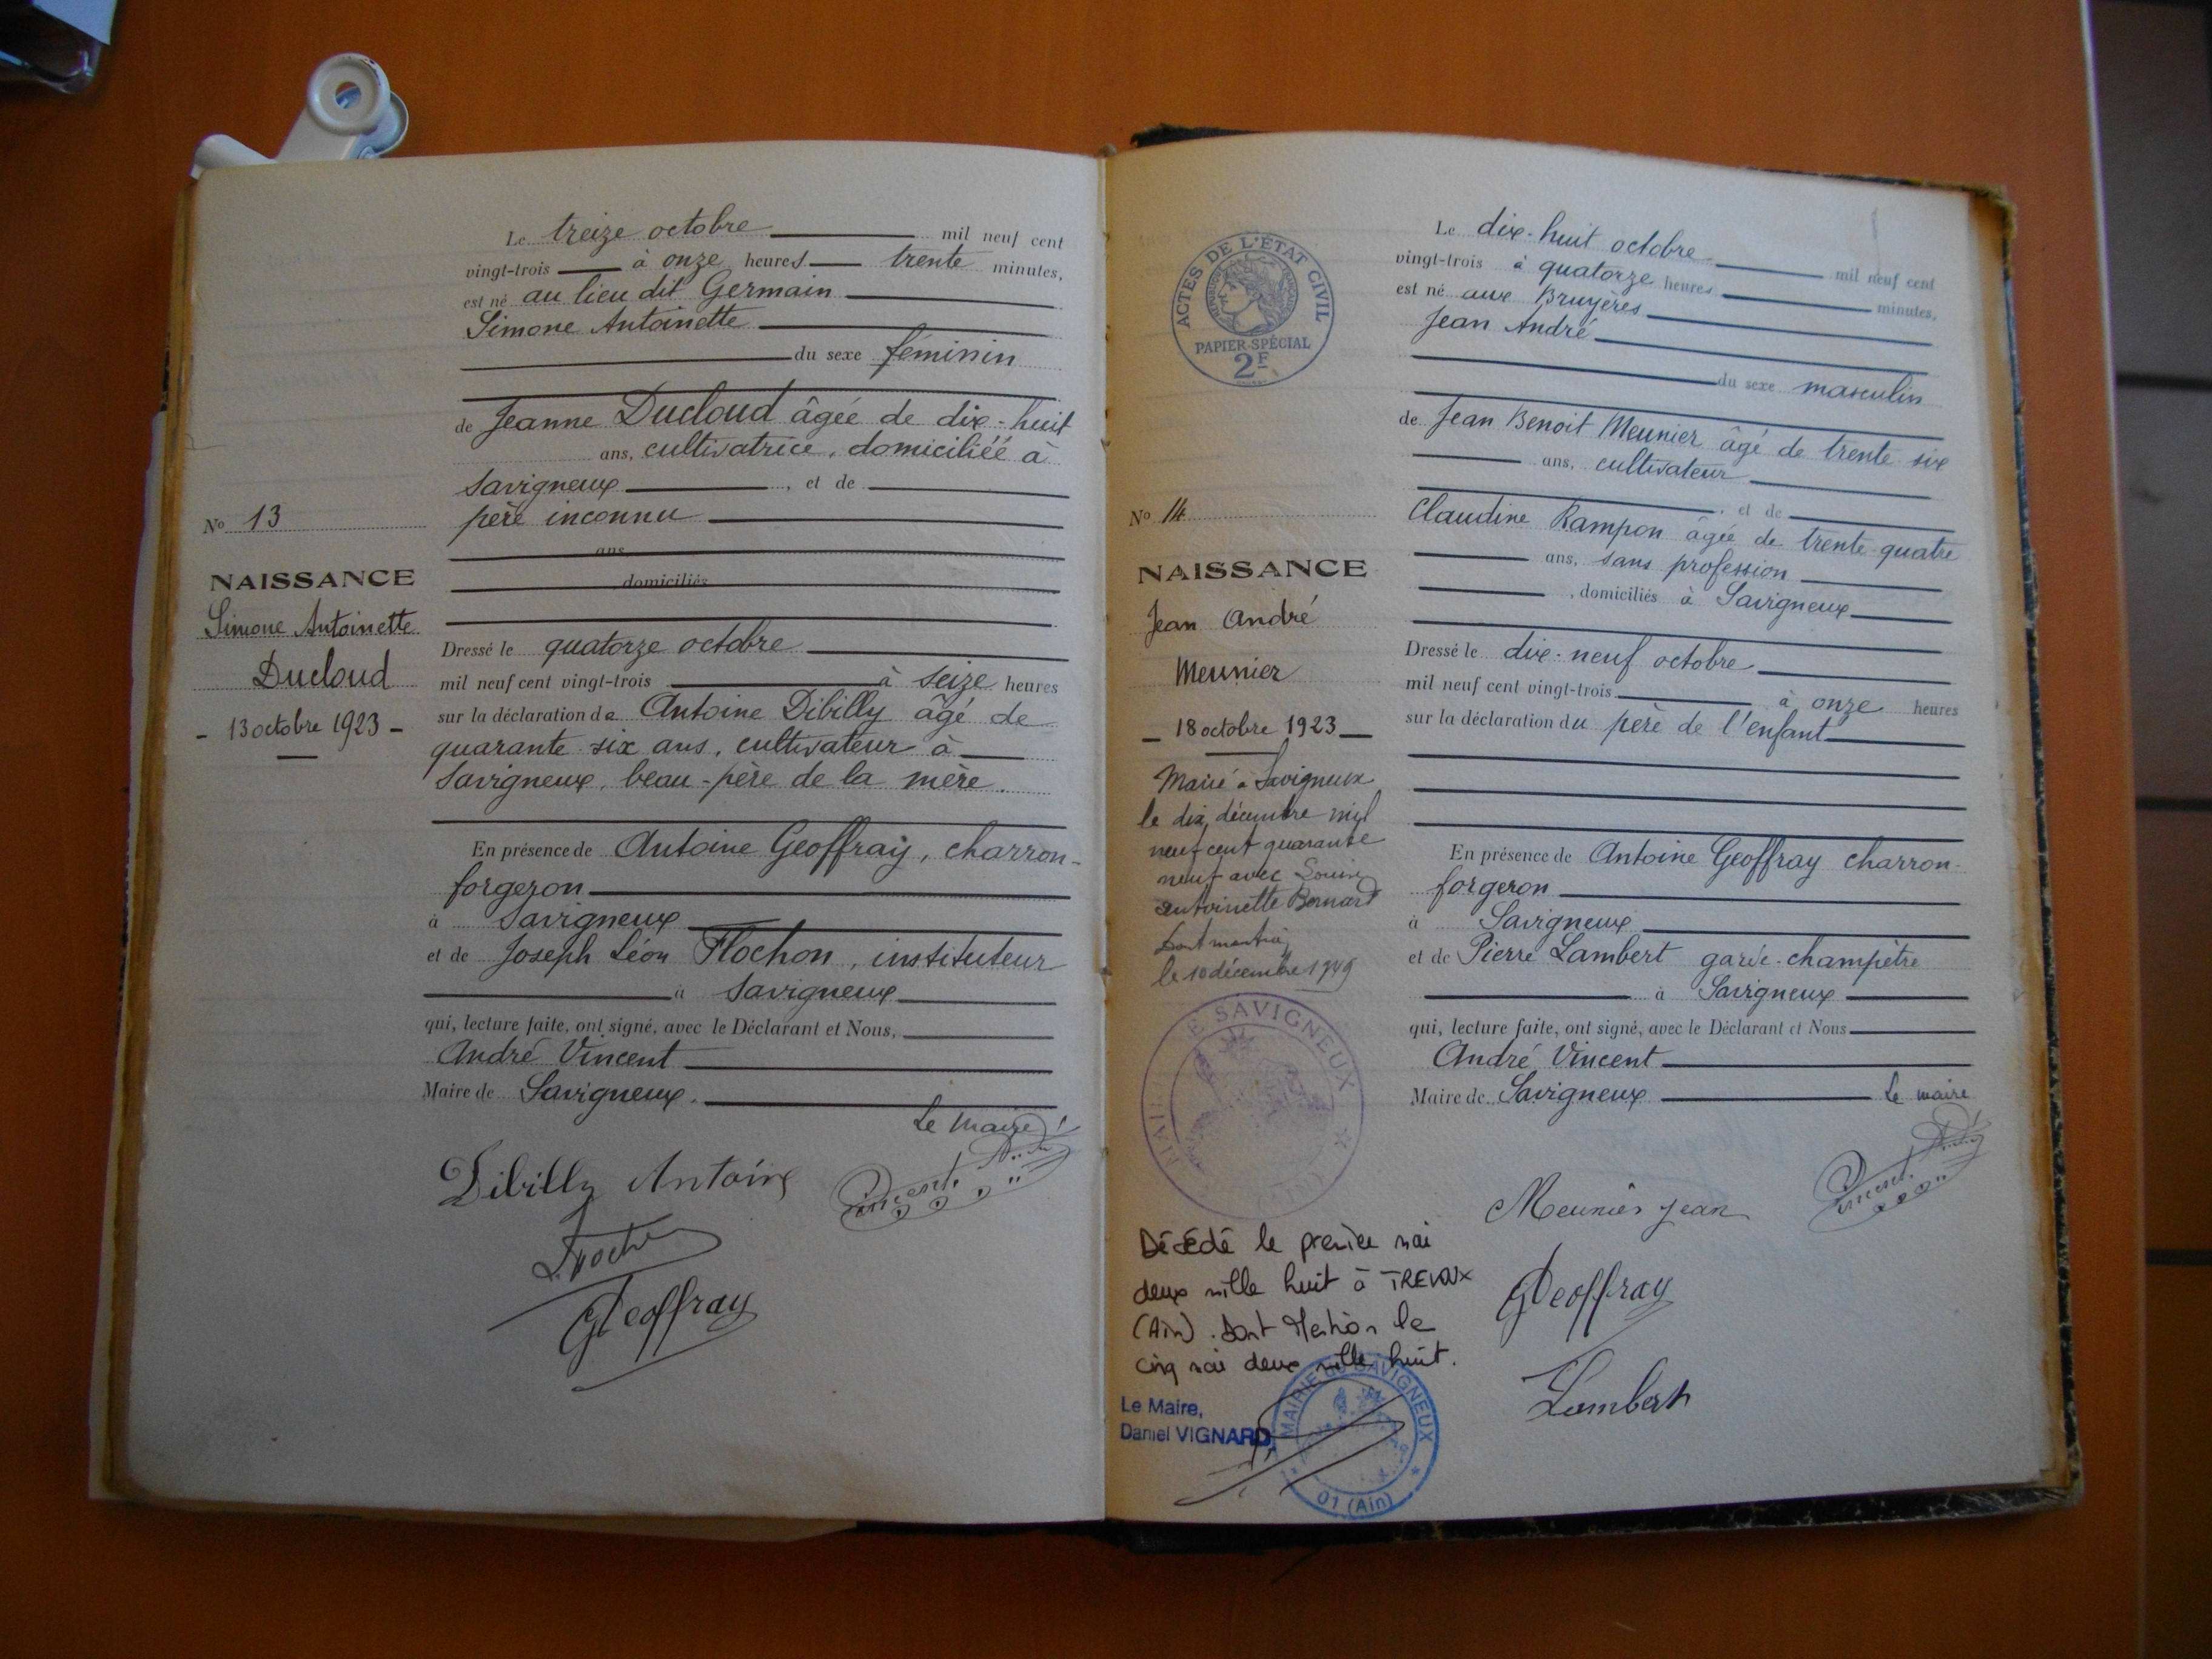 Le treize octobre mil neuf cent
vingt-trois à onze heures trente minutes,
est né au lieu dit Germain
Simone Antoinette
du sexe féminin
de Jeanne Ducloud âgée de dix-huit
ans, cultivatrice, domiciliéé à
Savigneux, et de
père inconnu
ans
domiciliés
Dressé le quatorze octobre
mil neuf cent vingt-trois à seize heures
sur la déclaration de Antoine Dibilly âgé de
quarante six ans, cultivateur à
Savigneux, beau-père de la mère.
En présence de Antoine Geoffray, charron-
forgeron
à Savigneux
et de Joseph Léon Flochon, instituteur
à Savigneux
qui, lecture faite, ont signé, avec le Déclarant et Nous,
André Vincent
Maire de Savigneux.
Le maire
Dibilly Antoine
Geoffray
No 13
NAISSANCE
Simone Antoinette
Ducloud
- 13 octobre 1923 -
ACTES DE L'ÉTAT CIVIL
PAPIER SPÉCIAL
2F
No 14
NAISSANCE
Jean André
Meunier
- 18 octobre 1923 -
Marié à Savigneux
le dix décembre mil
neuf cent quarante
neuf avec Louise
Antoinette Bernard
le 10 décembre 1949
DE SAVIGNEUX
Décédé le premier mai
deux mille huit à TREVOUX
(Ain). Dont Mention le
cinq mai deux mille huit.
Le Maire,
Daniel VIGNARD
MAIRIE de SAVIGNEUX
01 (Ain)
Le dix-huit octobre mil neuf cent
vingt-trois à quatorze heures minutes,
est né aux Bruyères
Jean André
du sexe masculin
de Jean Benoit Meunier âgé de trente six
ans, cultivateur
, et de
Claudine Rampon âgée de trente-quatre
ans, sans profession
, domiciliés à Savigneux
Dressé le dix-neuf octobre
mil neuf cent vingt-trois à onze heures
sur la déclaration du père de l'enfant
En présence de Antoine Geoffray charron-
forgeron
à Savigneux
et de Pierre Lambert garde-champêtre
à Savigneux
qui, lecture faite, ont signé, avec le Déclarant et Nous
André Vincent
Maire de Savigneux Le maire
Meunier Jean
Geoffray
Lambert